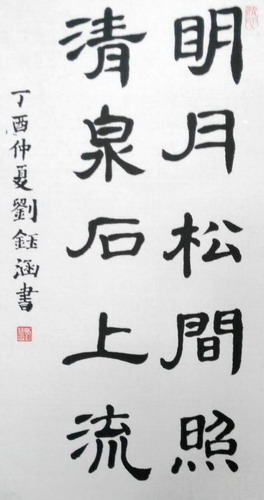 明月松間照
清泉石上流
丁酉仲夏劉鈺涵書